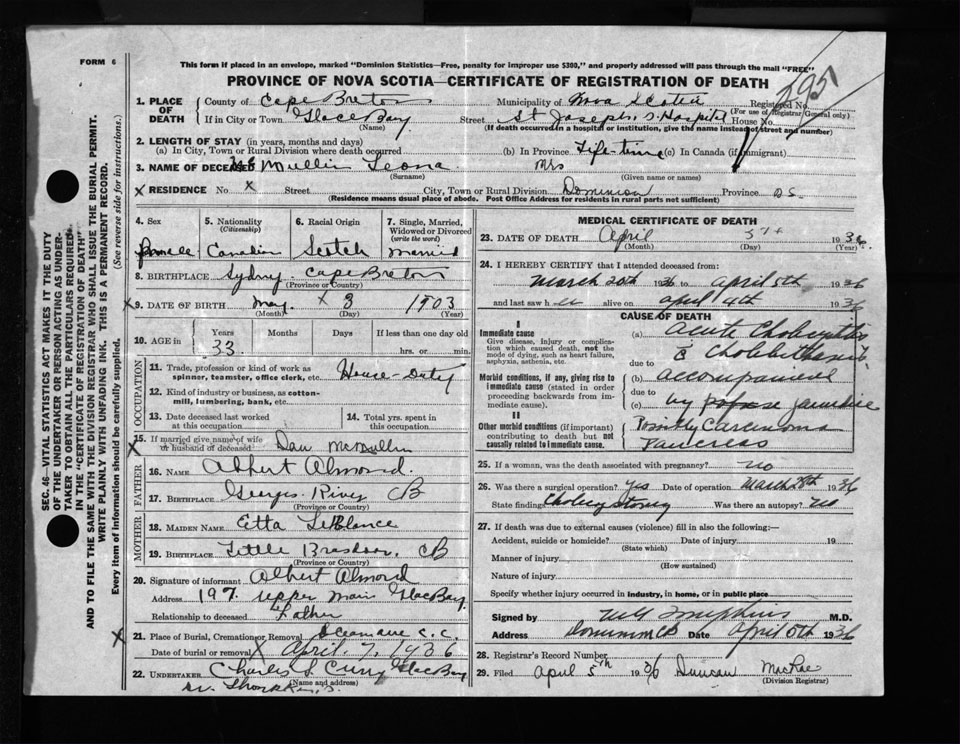 FORM 6
This form if placed in an envelope, marked "Dominion Statistics—Free, penalty for improper use $300," and properly addressed will pass through the mail "FREE"
PROVINCE OF NOVA SCOTIA—CERTIFICATE OF REGISTRATION OF DEATH
395
1. PLACE OF DEATH
County of Cape Breton Municipality of Nova Scotia Registered No.
(For use of Registrar General only)
If in City or Town Glace Bay Street St Joseph,s Hospital House No.
(Name) (If death occurred in a hospital or institution, give the name instead of street and number)
2. LENGTH OF STAY (in years, months and days)
(a) In City, Town or Rural Division where death occurred (b) In Province Life-time (c) In Canada (if immigrant)
3. NAME OF DECEASED McMullin Leona Mrs
(Surname) (Given name or names)
X RESIDENCE No X Street City, Town or Rural Division Dominion Province
(Residence means usual place of abode. Post Office Address for residents in rural parts not sufficient)
4. Sex 5. Nationality (Citizenship) 6. Racial Origin 7. Single, Married, Widowed or Divorced (write the word)
Female Canadian Scotch Married
8. BIRTHPLACE Sydney Cape Breton
(Province or County)
X 9. DATE OF BIRTH May X 3 1903
(Month) (Day) (Year)
10. AGE in Years Months Days If less than one day old
33 hrs. or min.
OCCUPATION
11. Trade, profession or kind of work as spinner, teamster, office clerk, etc. House-Duty
12. Kind of industry or business, as cotton-mill, lumbering, bank, etc.
13. Date deceased last worked at this occupation 14. Total yrs. spent in this occupation
X 15. If married give name of wife or husband of deceased Dan McMullin
FATHER
16. NAME Albert Almond.
17. BIRTHPLACE Georges River CB
(Province or County)
MOTHER
18. MAIDEN NAME Etta LeBlance
19. BIRTHPLACE Little Brasdoor, CB
(Province or County)
20. Signature of informant Albert Almond
Address 197 Upper Main Glace Bay
Relationship to deceased Father
X 21. Place of Burial, Cremation or Removal C.C.
Date of burial or removal X April, 7, 1936
22. UNDERTAKER Charles S. Curry Glace Bay
(Name and address)
MEDICAL CERTIFICATE OF DEATH
23. DATE OF DEATH April 5th 1936
(Month) (Day) (Year)
24. I HEREBY CERTIFY that I attended deceased from:
March 20th 1936 to April 5th 1936
and last saw her alive on April 4th 1936
CAUSE OF DEATH
I
Immediate cause
Give disease, injury, or complication which caused death, not the mode of dying, such as heart failure, asphyxia, asthenia, etc.
(a) Acute Cholecystitis
c̄ Cholelithiasis
due to
Morbid conditions, if any, giving rise to immediate cause (stated in order proceeding backwards from immediate cause).
(b) accompanied
due to
(c) by jaundice
II
Other morbid conditions (if important) contributing to death but not causally related to immediate cause.
Possibly Carcinoma
Pancreas
25. If a woman, was the death associated with pregnancy? no
26. Was there a surgical operation? Yes Date of operation March 28th 1936
State findings Cholecystostomy Was there an autopsy? No
27. If death was due to external causes (violence) fill in also the following:—
Accident, suicide or homicide? Date of injury 19
(State which)
Manner of injury
(How sustained)
Nature of injury
Specify whether injury occurred in industry, in home, or in public place
Signed by M.D.
Address Dominion CB Date April 5th 1936
28. Registrar's Record Number
29. Filed April 5th 1936 Duncan MacRae
(Division Registrar)
SEC. 46—VITAL STATISTICS ACT MAKES IT THE DUTY
OF THE UNDERTAKER OR PERSON ACTING AS UNDER-
TAKER TO OBTAIN ALL THE PARTICULARS REQUIRED
IN THE "CERTIFICATE OF REGISTRATION OF DEATH"
AND TO FILE THE SAME WITH THE DIVISION REGISTRAR WHO SHALL ISSUE THE BURIAL PERMIT.
WRITE PLAINLY WITH UNFADING INK. THIS IS A PERMANENT RECORD.
Every item of Information should be carefully supplied. (See reverse side for instructions.)